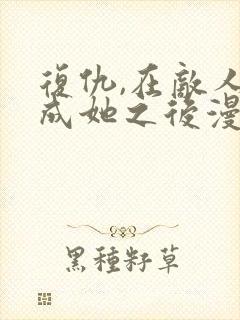 復仇,在敵人
成她之後漫
黑種籽草